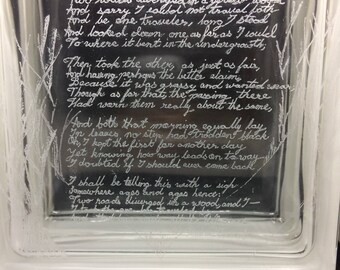 Two roads diverged in a yellow wood
And sorry I could not travel both
And be one traveler, long I stood
And looked down one as far as I could
To where it bent in the undergrowth;
Then took the other, as just as fair,
And having perhaps the better claim,
Because it was grassy and wanted wear;
Though as for that the passing there
Had worn them really about the same,
And both that morning equally lay
In leaves no step had trodden black
Oh, I kept the first for another day
Yet knowing how way leads on to way
I doubted if I should ever come back
I shall be telling this with a sigh
Somewhere ages and ages hence:
Two roads diverged in a wood, and I—
I took the one less traveled by